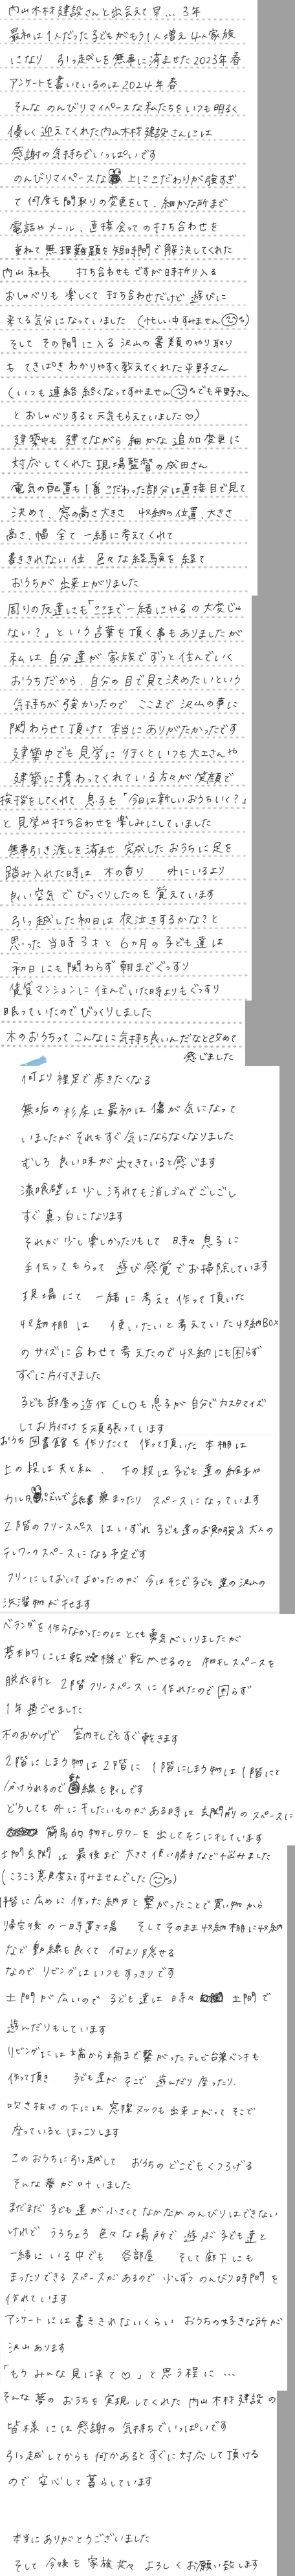 内山木材建設さんと出会えて早… 3年
最初は1人だった子どもがもう1人増え4人家族
になり 引っ越しを無事に済ませた2023年春
アンケートを書いているのは2024年春
そんな のんびりマイペースな私たちをいつも明るく
優しく迎えてくれた内山木材建設さんには
感謝の気持ちでいっぱいです
のんびりマイペースな 上にこだわりが強すぎ
て何度も間取りの変更をして、細かな所まで
電話やメール、直接会っての打ち合わせを
重ねて無理難題を短時間で解決してくれた
内山社長 打ち合わせもですが時折り入る
おしゃべりも楽しくて打ち合わせだけど 遊びに
来てる気分になっていました (忙しい中すみません な)
そして その間に入る沢山の書類のやり取り
も てきぱきわかりやすく教えてくれた平野さん
(いつも連絡 終くなってすみません でも平野さん
とおしゃべりすると元気もらえていました♡)
建築中も 建てながら 細かな 追加変更に
対応してくれた現場監督の成田さん
電気の配置も1番こだわった部分は直接目で見て
決めて、窓の高さ大きさ 収納の位置、大きさ
高さ、幅 全て 一緒に考えてくれて
書ききれない位 色々な経験を経て
おうちが 出来上がりました
周りの友達にも「ここまで一緒にやるの大変じゃ
ない?」という言葉を頂く事もありましたが
私は自分達が家族でずっと住んでいく
おうちだから、自分の目で見て決めたいという
気持ちが強かったので ここまで 沢山の事に
関わらせて頂けて本当にありがたかったです
建築中でも見学に行くといつも大工さんや
建築に携わってくれている方々が笑顔で
挨拶をしてくれて 息子も「今日は新しいおうちいく?」
と見学や打ち合わせを楽しみにしていました
無事引き渡しを済ませ 完成したおうちに足を
踏み入れた時は 木の香り 外にいるより
良い空気でびっくりしたのを覚えています
引っ越しした初日は夜泣きするかな?と
思った 当時3才と6ヵ月の子ども達は
初日にも関わらず朝までぐっすり
賃貸マンションに住んでいた時よりもぐっすり
眠っていたのでびっくりしました
木のおうちってこんなに気持ち良いんだなと改めて
感じました
何より裸足で歩きたくなる
無垢の杉床は最初は傷が気になって
いましたがそれもすぐ気にならなくなりました
むしろ 良い味が出てきていると感じます
漆喰壁は少し汚れても消しゴムでごしごし
すぐ真っ白になります
それが少し楽しかったりもして 時々息子に
手伝ってもらって 遊び感覚でお掃除しています
現場にて 一緒に考えて作って頂いた
収納棚は 使いたいと考えていた収納BOX
のサイズに合わせて考えたので収納にも困らず
すぐに片付きました
子ども部屋の造作CLOも息子が自分でカスタマイズ
してお片付けを頑張っています
おうち図書館を作りたくて 作って頂いた本棚は
上の段は夫と私、 下の段は子ども達の絵本や
2階のフリースペースはいずれ子ども達のお勉強&大人の
テレワークスペースになる予定です
フリーにしておいてよかったのが 今はそこで子ども達の沢山の
洗濯物が干せます
ベランダを作らなかったのはとても勇気がいりましたが
基本的には乾燥機で乾かせるのと 物干しスペースを
脱衣所と 2階フリースペースに作れたので困らず
1年過ごせました
木のおかげで 室内干しでもすぐ乾きます
2階にしまう物は2階に 1階にしまう物は1階にと
分けられるので動線も良しです
どうしても外に干したいものがある時は玄関前のスペースに
簡易的物干しタワーを出してそこに干しています
土間玄関は 最後まで大きさ使い勝手など悩みました
(ころころ意見変えてすみませんでした )
特に広めに作った納戸と繋がったことで買い物から
帰宅後の一時置き場 そしてそのまま収納棚に収納
など動線も良くて 何より隠せる
なのでリビングはいつもすっきりです
土間が広いので 子ども達は時々 土間で
遊んだりもしています
リビングには端から端まで繋がったテレビ台兼ベンチも
作って頂き 子ども達がそこで 遊んだり座ったり、
吹き抜けの下には窓際ヌックも出来上がってそこで
座っているとほっこりします
このおうちに引っ越して おうちのどこでもくつろげる
そんな夢が叶いました
まだまだ子ども達が小さくてなかなかのんびりはできない
けれど うろちょろ色々な場所で遊ぶ子ども達と
一緒にいる中でも 各部屋 そして廊下にも
まったりできるスペースがあるので 少しずつのんびり時間を
作れています
アンケートには書ききれないくらい おうちの好きな所が
沢山あります
「もう みんな見に来て♡」と思う程に…
そんな夢のおうちを実現してくれた内山木材建設の
皆様には感謝の気持ちでいっぱいです
引っ越してからも何かあるとすぐに対応して頂ける
ので 安心して暮らしています
本当にありがとうございました
そして 今後も家族共々 よろしくお願い致します